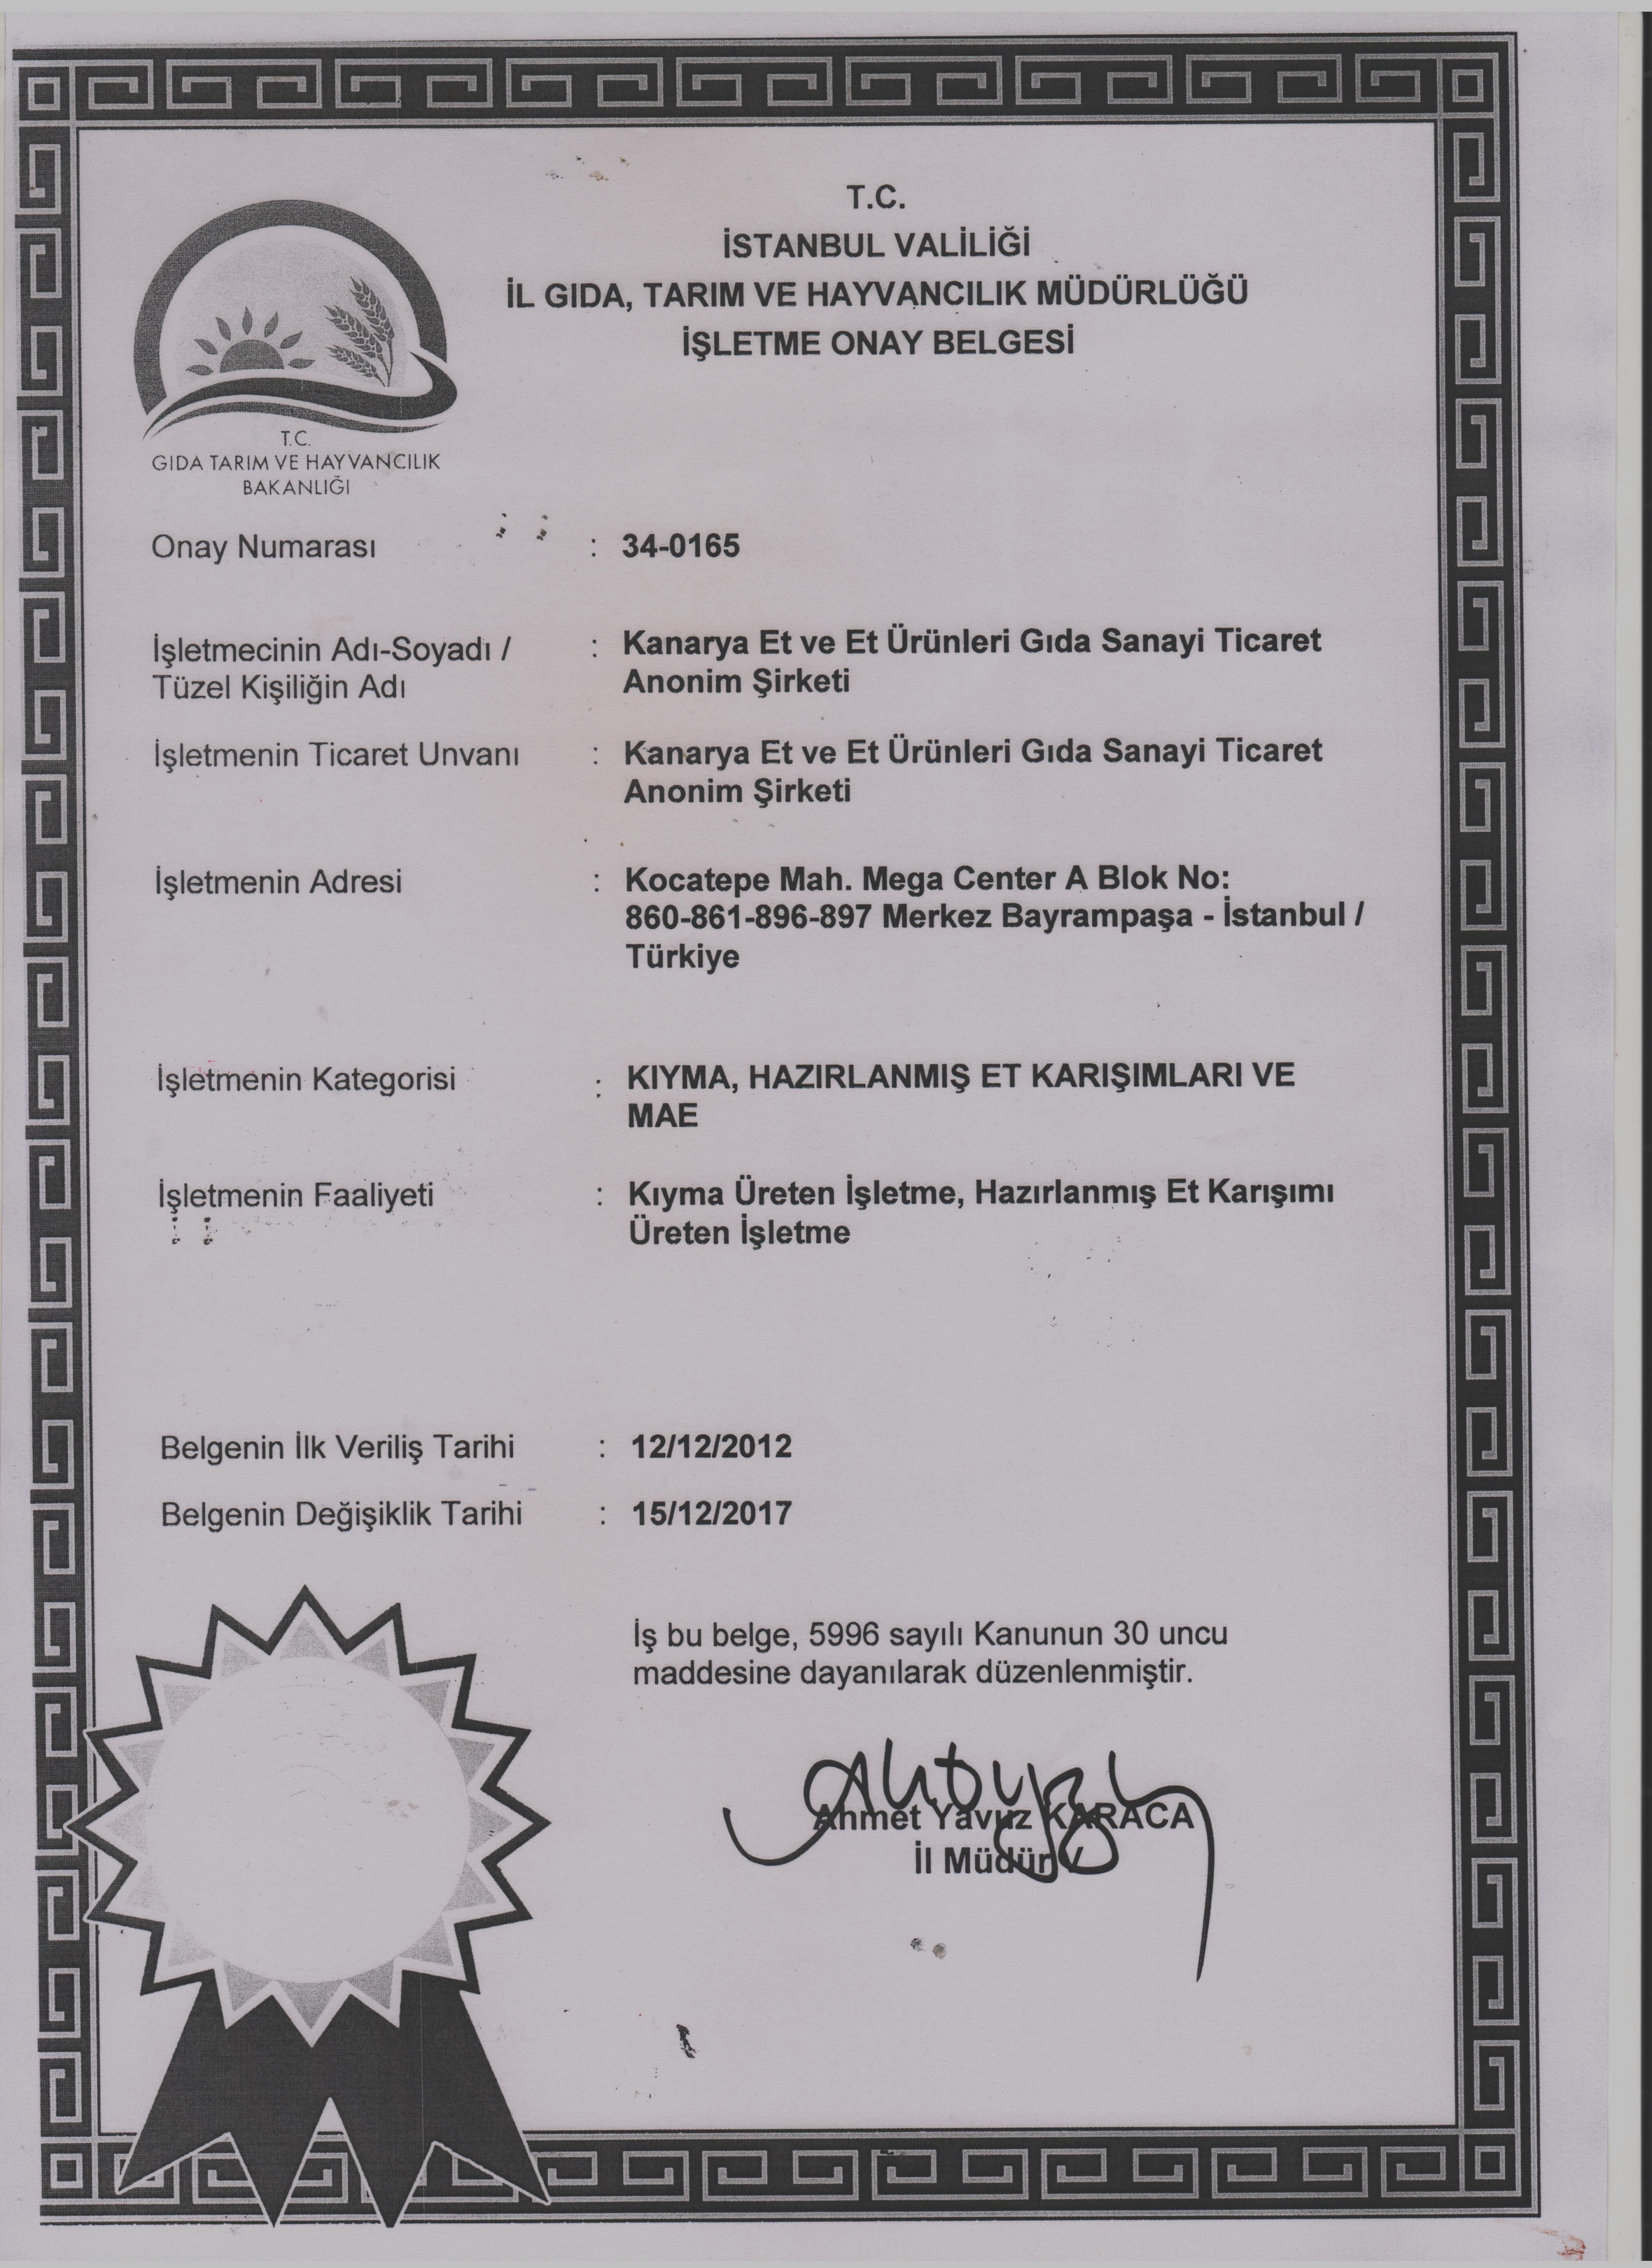 T.C.
İSTANBUL VALİLİĞİ
İL GIDA, TARIM VE HAYVANCILIK MÜDÜRLÜĞÜ
İŞLETME ONAY BELGESİ
T.C.
GIDA TARIM VE HAYVANCILIK
BAKANLIĞI
Onay Numarası : 34-0165
İşletmecinin Adı-Soyadı / : Kanarya Et ve Et Ürünleri Gıda Sanayi Ticaret
Tüzel Kişiliğin Adı Anonim Şirketi
İşletmenin Ticaret Unvanı : Kanarya Et ve Et Ürünleri Gıda Sanayi Ticaret
Anonim Şirketi
İşletmenin Adresi : Kocatepe Mah. Mega Center A Blok No:
860-861-896-897 Merkez Bayrampaşa - İstanbul /
Türkiye
İşletmenin Kategorisi : KIYMA, HAZIRLANMIŞ ET KARIŞIMLARI VE
MAE
İşletmenin Faaliyeti : Kıyma Üreten İşletme, Hazırlanmış Et Karışımı
Üreten İşletme
Belgenin İlk Veriliş Tarihi : 12/12/2012
Belgenin Değişiklik Tarihi : 15/12/2017
İş bu belge, 5996 sayılı Kanunun 30 uncu
maddesine dayanılarak düzenlenmiştir.
Ahmet Yavuz KARACA
İl Müdür V